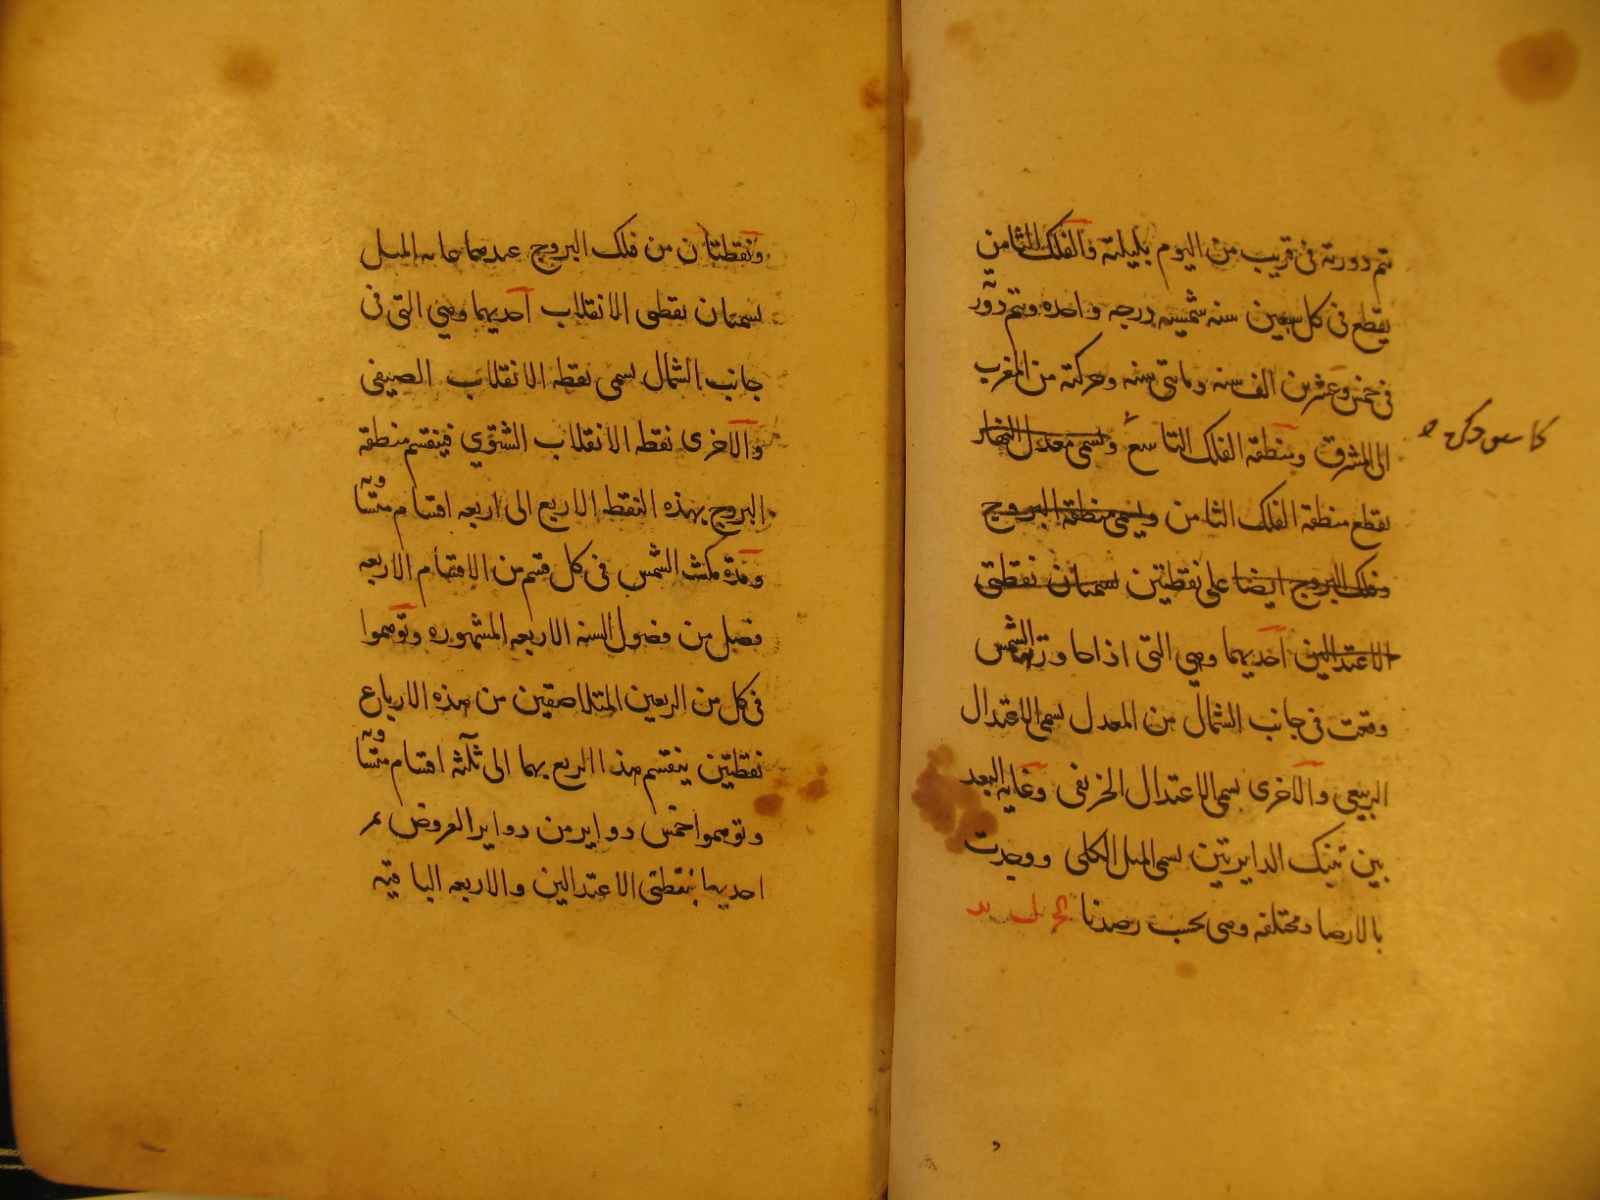 تتم دورته فى قريب من اليوم بليلته والفلك الثامن
يقطع فى كل سبعين سنه شمسيه درجه واحده وتتم دوره
فى خمس وعشرين الف سنه ومائتى سنه وحركته من المغرب
الى المشرق ومنطقه الفلك التاسع وتسمى معدل النهار
كما سبق ذكره
يقطع منطقه الفلك الثامن وتسمى منطقه البروج
وفلك البروج ايضا على نقطتين تسميان نقطتى
الاعتدالين احديهما وهى التى اذا جاوزتها الشمس
وقعت فى جانب الشمال من المعدل تسمى الاعتدال
الربيعى والاخرى تسمى الاعتدال الخريفى وغايه البعد
بين تينك الدايرتين تسمى الميل الكلى ووجدت
بالارصاد مختلفه وهى بحسب رصدنا
ونقطتان من فلك البروج عندهما غايه الميل
تسميان نقطتى الانقلاب احديهما وهى التى فى
جانب الشمال تسمى نقطه الانقلاب الصيفى
والاخرى نقطه الانقلاب الشتوى فينقسم منطقه
البروج بهذه النقطه الاربع الى اربعه اقسام متساويه
ومدة مكث الشمس فى كل قسم من الاقسام الاربعه
فصل من فصول السنه الاربعه المشهوره وتوهموا
فى كل من الربعين المتلاصقين من هذه الارباع
نقطتين ينقسم هذا الربع بهما الى ثلثه اقسام متساويه
وتوهموا خمس دواير من دواير العروض يمر
احديها بنقطتى الاعتدالين والاربعه الباقيه